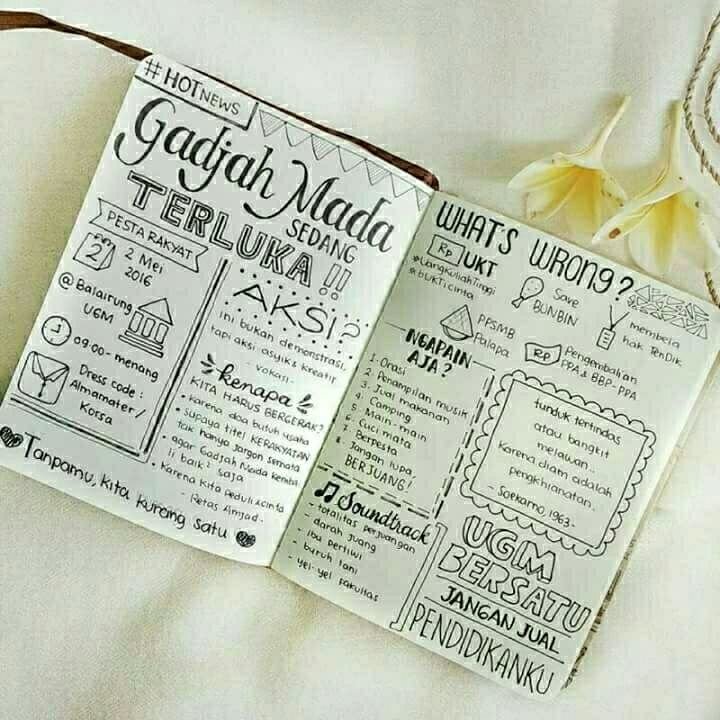 #HOTNEWS
Gadjah Mada
SEDANG
TERLUKA!!
PESTA RAKYAT
2
2 Mei
2016
@ Balairung
UGM
09.00 - menang
Dress code :
Almamater/
Korsa
AKSI?
ini bukan demonstrasi,
tapi aksi asyik & kreatif
vokasi-
kenapa
KITA HARUS BERGERAK?
• karena doa butuh usaha
• supaya titel KERAKYATAN
tak hanya jargon semata
• agar Gadjah Mada kembali
baik² saja
• karena kita peduli & cinta
- Retas Amjad -
Tanpamu, kita kurang satu
WHAT'S WRONG?
Rp UKT
#UangKuliahTinggi
#bUKTicinta
Save
BUNBIN
membela
hak TenDik
PPSMB
Palapa
Rp
Pengembalian
PPA & BBP-PPA
NGAPAIN
AJA?
1. Orasi
2. Penampilan musik
3. Jual makanan
4. Camping
5. Main-main
6. Cuci mata
7. Berpesta
8. Jangan lupa,
BERJUANG!
tunduk tertindas
atau bangkit
melawan..
karena diam adalah
pengkhianatan.
- Soekarno, 1963 -
Soundtrack
- totalitas perjuangan
- darah juang
- ibu pertiwi
- buruh tani
- yel-yel fakultas
UGM
BERSATU
JANGAN JUAL
PENDIDIKANKU